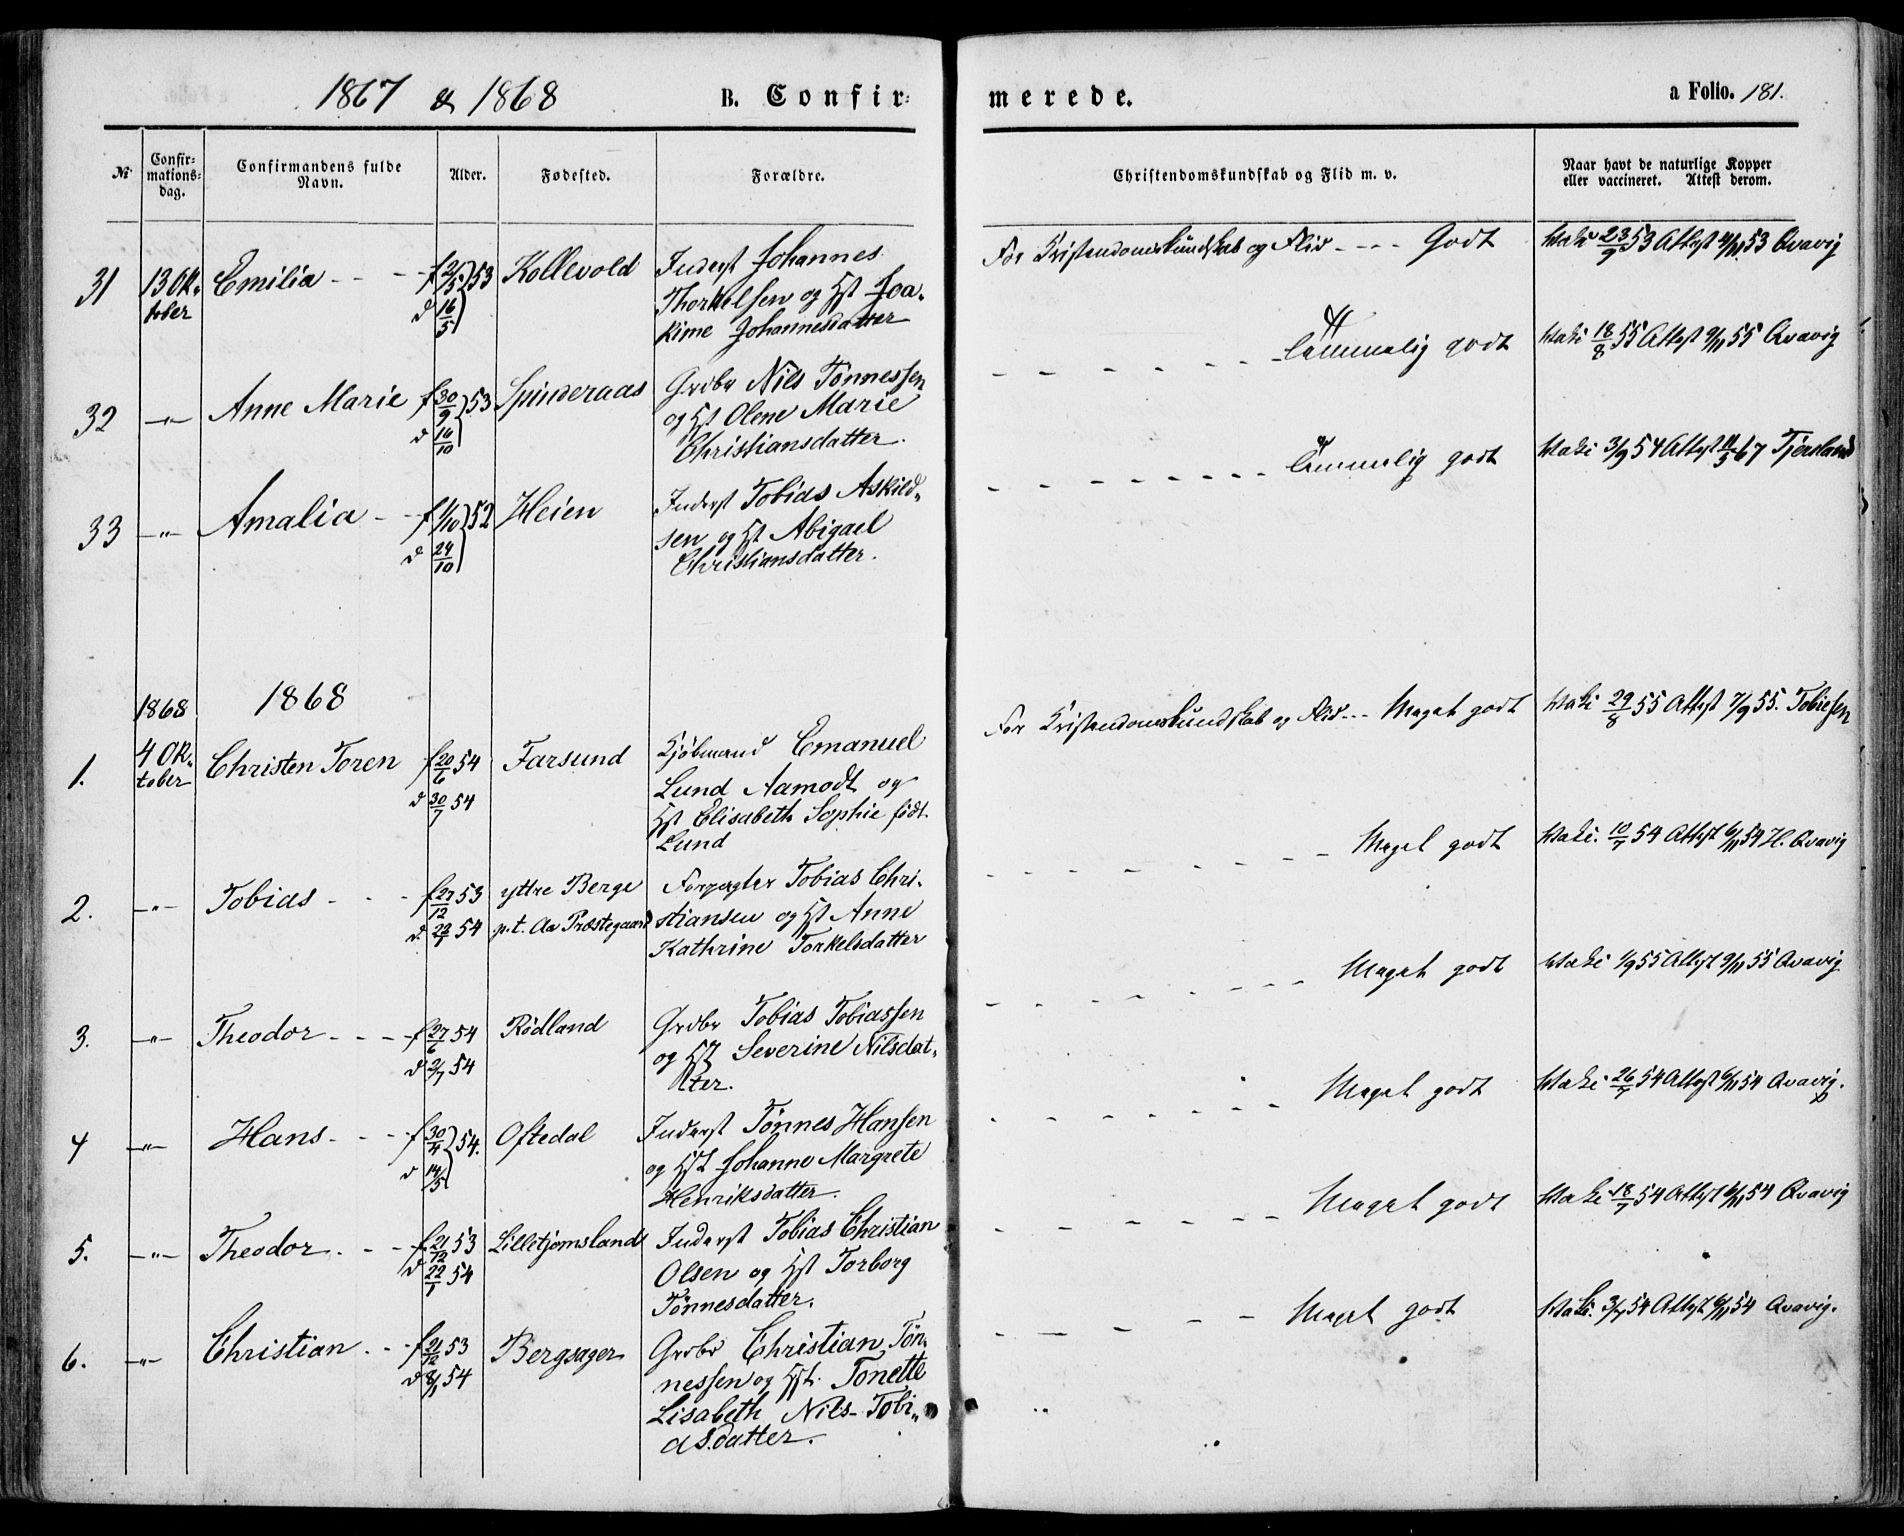 1867 & 1868
B. Confir-
merede.
a Folio. 181.
№
Confir-
mations-
dag.
Confirmandens fulde
Navn.
Alder.
Fødested.
Forældre.
Christendomskundskab og Flid m. v.
Naar havt de naturlige Kopper
eller vaccineret. Attest derom.
31 13 Ok-
tober
Emilia - - - f 2/5 } 53
d 16/5
Kollevold
Inderst Johannes
Thorkelsen og Hst Joa-
kime Johannesdatter
For Kristendomskundskab og Flid - - - - Godt
Vaki 23/9 53 Attest 53 Qvavig
32 -"- Anne Marie f 30/9 } 53
d 16/10
Spinderaas
Grdbr Nils Tønnessen
og Hst Olene Marie
Christiansdatter.
- - - - - - - Temmelig godt
Vaki 18/8 55 Attest 9/11 55 Qvavig
33 -"- Amalia - - f 1/10 } 52
d 24/10
Heien
Inderst Tobias Askild-
sen og Hst Abigael
Christiansdatter.
- - - - - - - - Temmelig godt
Vaki 3/9 54 Attest 11/5 67 Tjersland
1868
1868
1. 4 Ok-
tober
Christen Toren f 20/6 54
d 30/7 54
Farsund
Kjøbmand Emanuel
Lund Aamodt og
Hst Elisabeth Sophie født
Lund
For Kristendomskundskab og Flid - - - Meget godt
Vaki 29/8 55 Attest 7/9 55. Tobiesen
2. -"- Tobias - - - f 27/12 53
d. 22/1 54
yttre Berge
p.t. Aa Præstegaard
Forpagter Tobias Chri-
stiansen og Hst Anne
Kathrine Torkelsdatter
- - - - - - - - Meget godt
Vaki. 10/7 54 Attest 6/11 54 H. Qvavig
3. -"- Theodor - - - f 27/6 54
d 2/7 54
Rødland
Grdbr Tobias Tobiassen
og Hst Severine Nilsdat-
ter.
- - - - - - - - Meget godt
Vaki 1/9 55 Attest 9/11 55 Qvavig
4 -"- Hans - - - f 30/4 } 54.
d 14/5
Oftedal
Inderst Tønnes Hansen
og Hst Johanne Margrete
Henriksdatter.
- - - - - - - - Meget godt
Vaki 26/7 54 Attest 6/11 54 Qvavig.
5. -"- Theodor - - - f 21/12 53
d 22/1 54
Lilletjomsland
Inderst Tobias Christian
Olsen og Hst Torborg
Tønnesdatter.
- - - - - - - Meget godt
Vaki 18/7 54 Attest 6/11 54 Qvavig
6. -"- Christian - - f 21/12 53
d 8/1 54
Bergsager
Grdbr Christian Tøn-
nessen og Hst. Tonette
Lisabeth Nils-Tobi-
asdatter.
- - - - - - - Meget godt
Vaki. 3/7 54 Attest 6/11 54 Qvavig.